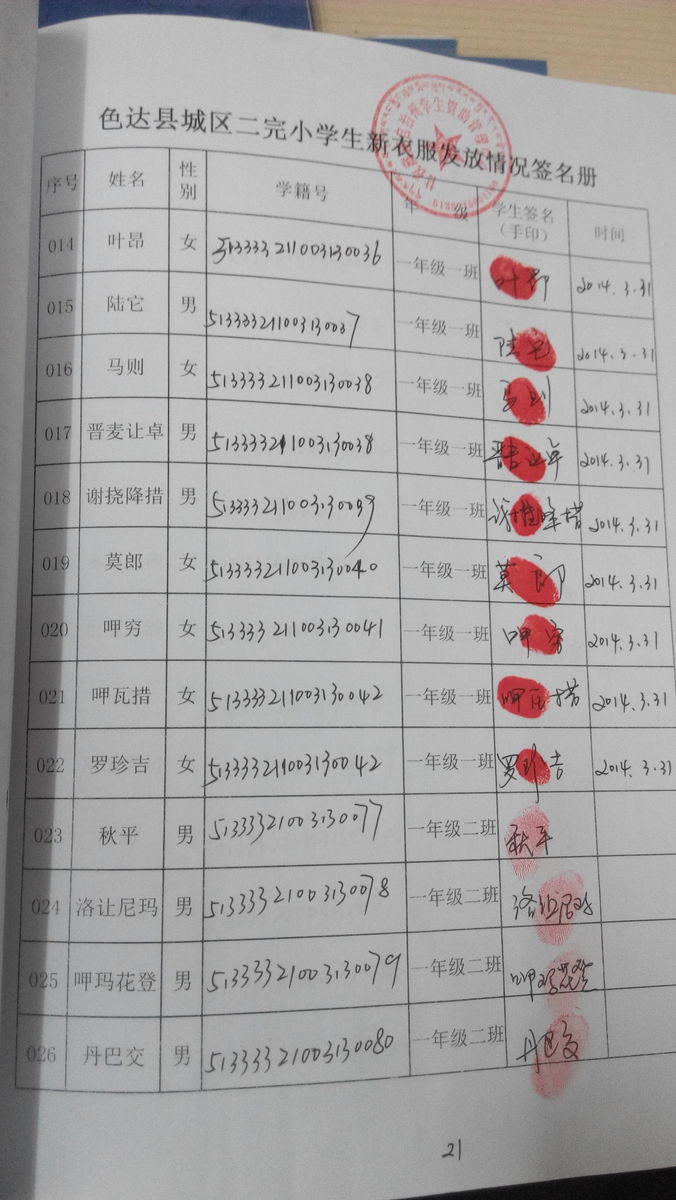 色达县城区二完小学生新衣服发放情况签名册
学生资助管理
序号 姓名 性别 学籍号 年级 学生签名（手印） 时间
014 叶昂 女 513333211003130036 一年级一班 叶昂 2014.3.31
015 陆它 男 513333211003130037 一年级一班 陆它 2014.3.31
016 马则 女 513333211003130038 一年级一班 马则 2014.3.31
017 晋麦让卓 男 513333211003130038 一年级一班 2014.3.31
018 谢挠降措 男 513333211003130039 一年级一班 2014.3.31
019 莫郎 女 513333211003130040 一年级一班 莫郎 2014.3.31
020 呷穷 女 513333211003130041 一年级一班 呷穷 2014.3.31
021 呷瓦措 女 513333211003130042 一年级一班 呷瓦措 2014.3.31
022 罗珍吉 女 513333211003130042 一年级一班 罗珍吉 2014.3.31
023 秋平 男 51333321003130077 一年级二班 秋平
024 洛让尼玛 男 51333321003130078 一年级二班
025 呷玛花登 男 51333321003130079 一年级二班 呷玛花登
026 丹巴交 男 51333321003130080 一年级二班 丹巴交
21